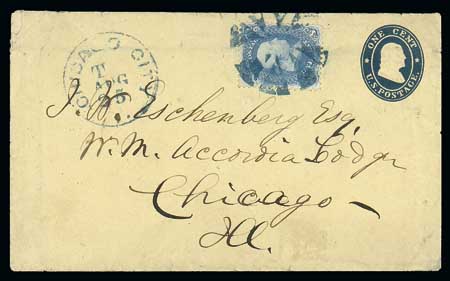 CHICAGO CITY
T
AUG
25
ONE CENT
U.S. POSTAGE.
J. H. Eschenberg Esq.
W. M. Accordia Lodge
Chicago
Ill.